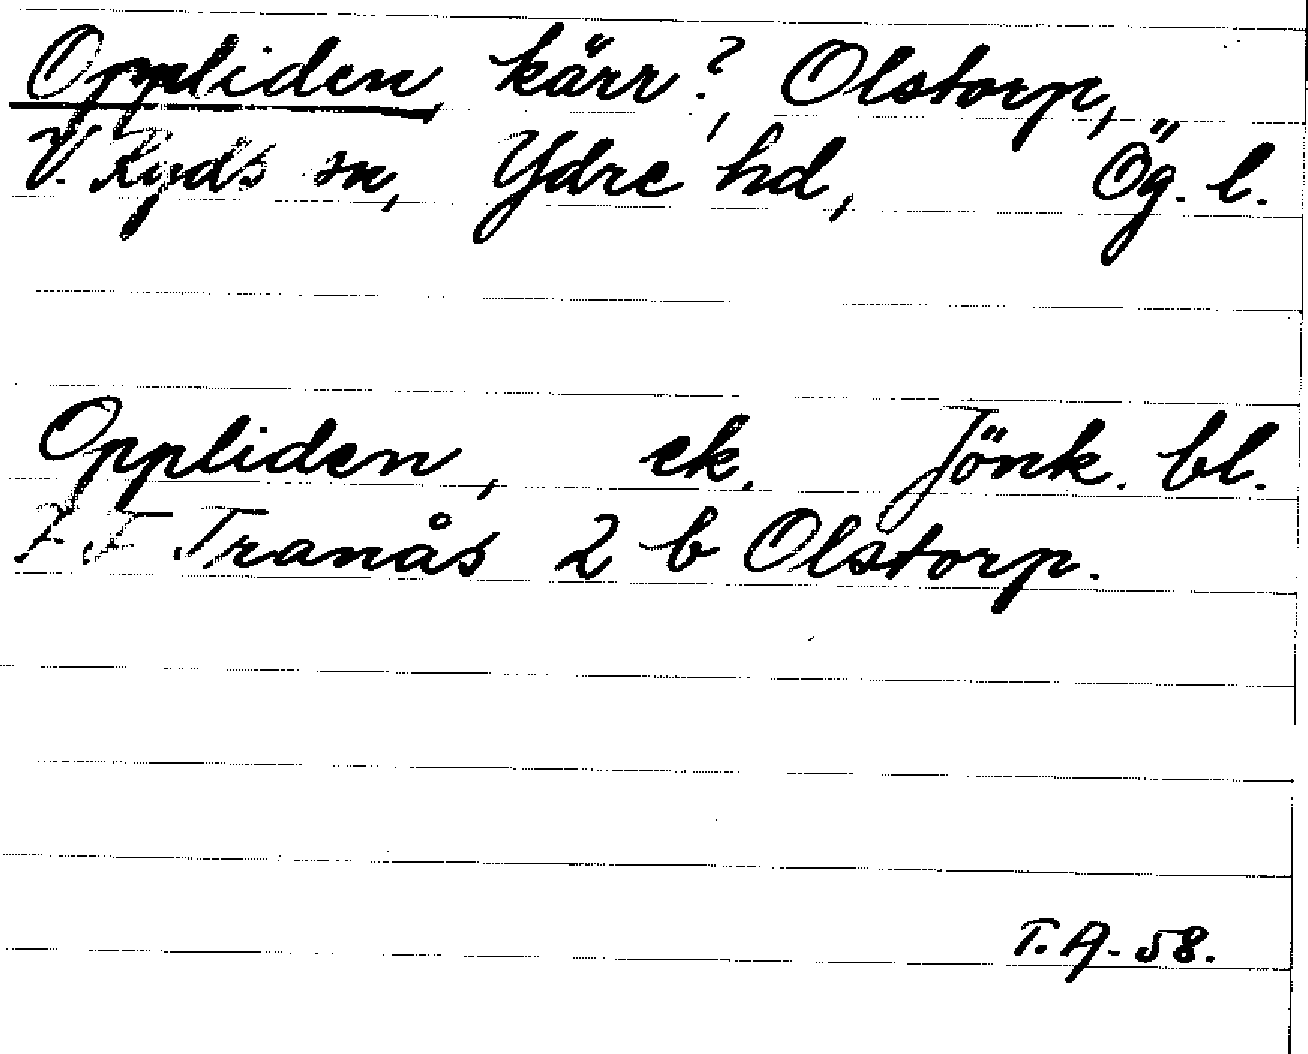 Oppliden kärr?, Olstorp,
V. Ryds sn, Ydre hd, Ög. l.
Oppliden, ek. Jönk. bl.
7 F Tranås 2 b Olstorp.
T. A. 58.